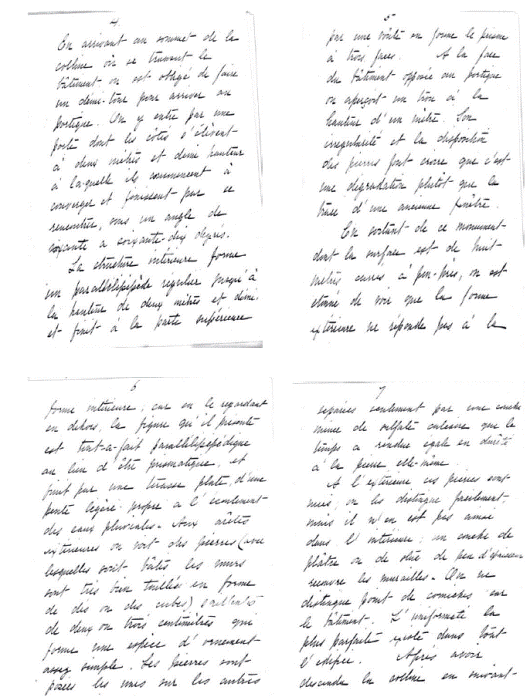 4
En arrivant au sommet de la
colline où se trouvent le
bâtiment, on est obligé de faire
un demi-tour pour arriver au
portique. On y entre par une
porte dont les côtés s'élèvent
à deux mètres et demi hauteur
à laquelle ils commencent à
converger et finissent par se
rencontrer, sous un angle de
soixante a soixante-dix degrés.
La structure intérieure forme
un parallélipipède regulier jusqu'à
la hauteur de deux mètres et demi
et finit à la partie supérieure
5
par une voûte en forme le prisme
à trois faces. A la face
du bâtiment opposée au portique
on aperçoit un trou à la
hauteur d'un mètre. Son
irregularité et la disposition
des pierres font croire que c'est
une dégradation plutôt que la
trace d'une ancienne fenêtre.
En sortant de ce monument
dont la surface est de huit
mètres carrés à peu-près, on est
étonné de voir que la forme
extérieure ne réponde pas à la
6
forme intérieure; car en le regardant
en dehors, la figure qu'il présente
est tout-a-fait parallélipipédique
au lieu d'être prismatique, et
finit par une terrasse plate, d'une
pente légère propre a l'écoulement
des eaux pluviales. Aux
extérieures on voit des pierres (avec
lesquelles sont bâties les murs
sont très bien taillées en forme
de des ou des cubes) saillantes
de deux ou trois centimètres que
forme une espèce d'ornement
assez simple. Les pierres sont
posées les unes sur les autres
7
séparées seulement par une couche
mince de sulfate calcaire que le
temps a rendue égale en dureté
à la pierre elle-même.
A l'extérieure ces pierres sont
unies, on les distingue facilement
mais il n'en est pas ainsi
dans l'interieure; un couche de
plâtre ou de stuc de peu d'épaisseur
recouvre les murailles. On ne
distingue point de corniches sur
le bâtiment. L'uniformité la
plus parfaite existe dans tout
l'édifice. Après avoir
descendu la colline en suivant